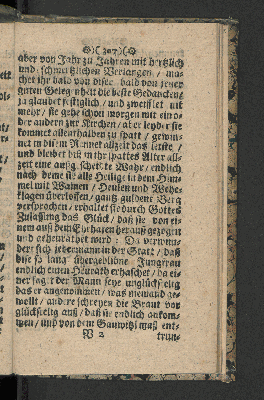 )( 307 )(
aber von Jahr zu Jahren mit hertzlich
und schmertzlichen Verlangen / ma-
chet ihr bald von diser bald von jener
guten Gelegenheit die beste Gedancken
ja glaubet festiglich / und zweifflet nit
mehr / sie gehe schon morgen mit ein
ander andern zur Kirchen / aber leyder sie
kommet allenthalben zu spatt / gewin-
net in disem Rennet allzeit das letzte /
und bleibet biß in ihr spattes Alter all-
zeit eine auffgeschobene Wahr / endlich
nach deme sie alle Heilige in dem Him-
mel mit Weinen / Heulen und Wehe-
klagen überloffen / gantz guldene Berg
versprochen / erhaltet sie durch Gottes
Zulassung das Glück / daß sie von ei-
nen auß dem Ehehafen herauß gezogen
und geheurathet wird: Da verwun-
dert sich jedermann in der Statt / daß
dise so lang übergeblibene Jungfrau
endlich einen Heurath erhaschet / da ei-
ner saget der Mann seye unglückselig
das er angenommen / was niemand ge-
wollt / andere schreyen die Braut vor
glückselig auß / daß sie endlich ankom-
men / und von dem
V 2
trun-